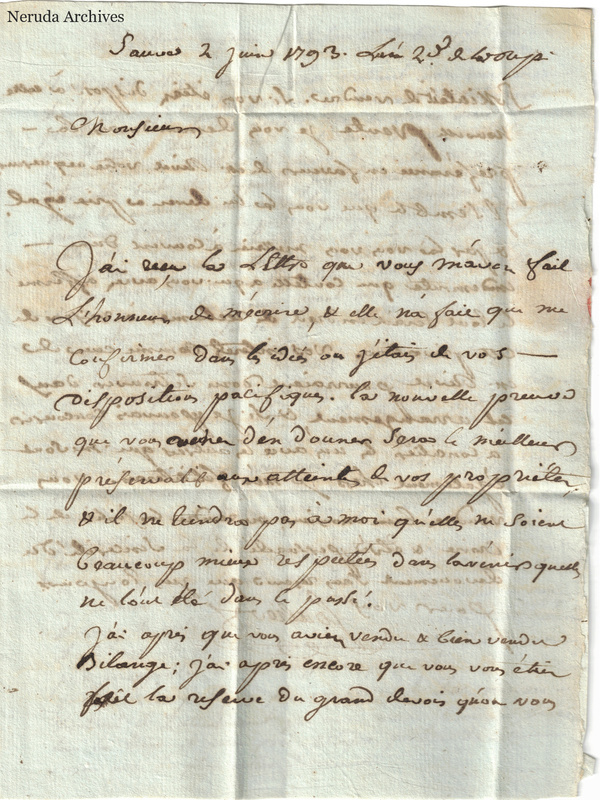 Neruda Archives
Sauve 2 juin 1793. L'an 2d. de la
Monsieur
J'ai reçu la Lettre que vous maven fait
L'honneur de mécrire, & elle n'a fait que me
Confirmer dans les idées ou j'étais de vos —
Dispositions pacifiques. La nouvelle preuve
que vous venez d'en donner sera le meilleur
préservatif aux atteintes de vos proprietés,
& il ne tiendra pas à moi qu'elles ne soient
beaucoup mieux respectées dans lavenir quelles
ne l'ont été dans le passé.
j'ai apris que vous aviez vendu & bien vendu
Bilange; j'ai apris encore que vous vous étiez
fait la reserve du grand devois qu'on vous